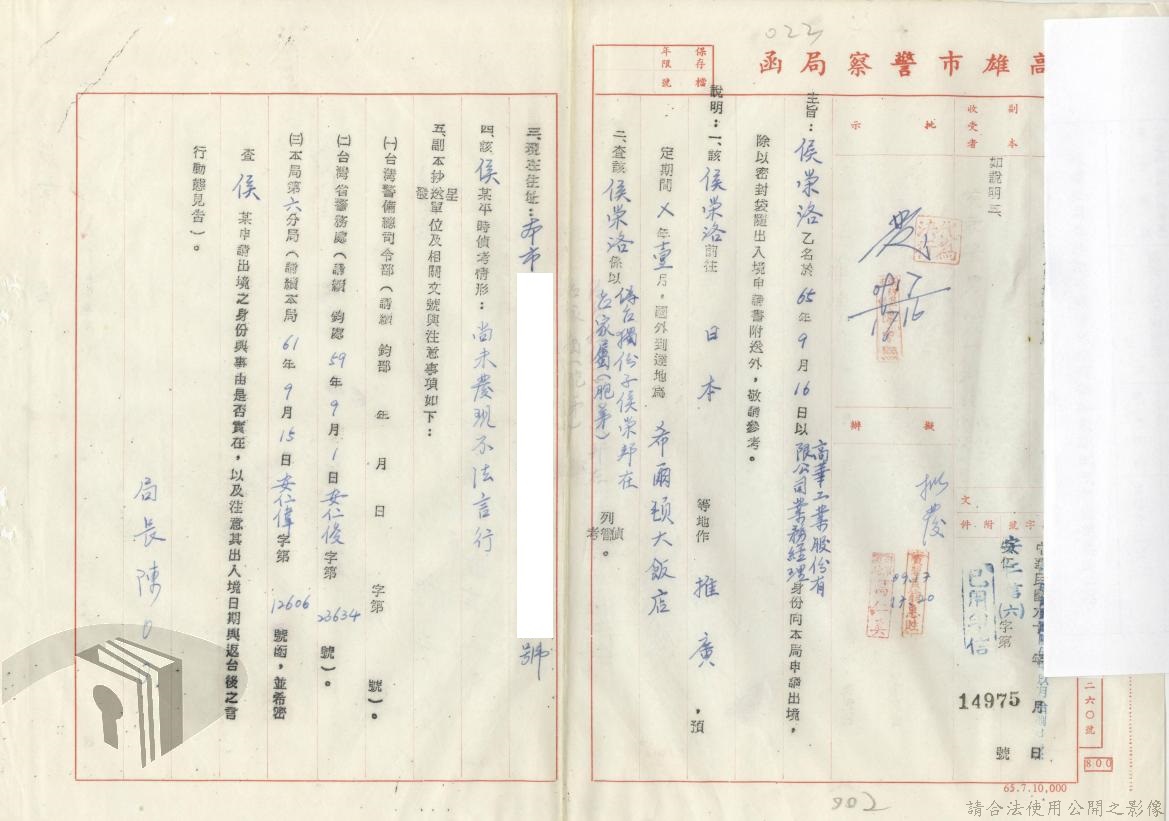 022
高雄市警察局函
保存年限
檔號
副本收受者
如說明三、
批示
擬辦
擬發
文
字號
附件
安仁
(六)字第
14975
號
年月日
已用印信
主旨：侯榮洛乙名於65年9月16日以高華工業股份有限公司業務經理身份向本局申請出境，
除以密封袋隨出入境申請書附送外，敬請參考。
說明：一、該侯榮洛前往日本等地作推廣，預
定期間×年壹月，國外到達地為希爾頓大飯店
二、查該侯榮洛係以傅台獨份子侯榮邦在台家屬(胞弟)列管偵考。
三、現在住址：本市
號
四、該侯某平時偵考情形：尚未發現不法言行
五、副本抄呈送發單位及相關文號與注意事項如下：
㈠台灣警備總司令部（請續鈞部年月日字第號）。
㈡台灣省警務處（請續鈞處59年9月1日安仁俊字第23634號）。
㈢本局第六分局（請續本局61年9月15日安仁偉字第12606號函，並希密
查侯某申請出境之身份與事由是否實在，以及注意其出入境日期與返台後之言
行動態見告）。
局長陳
二六〇號
800
65.7.10,000
002
請合法使用公開之影像